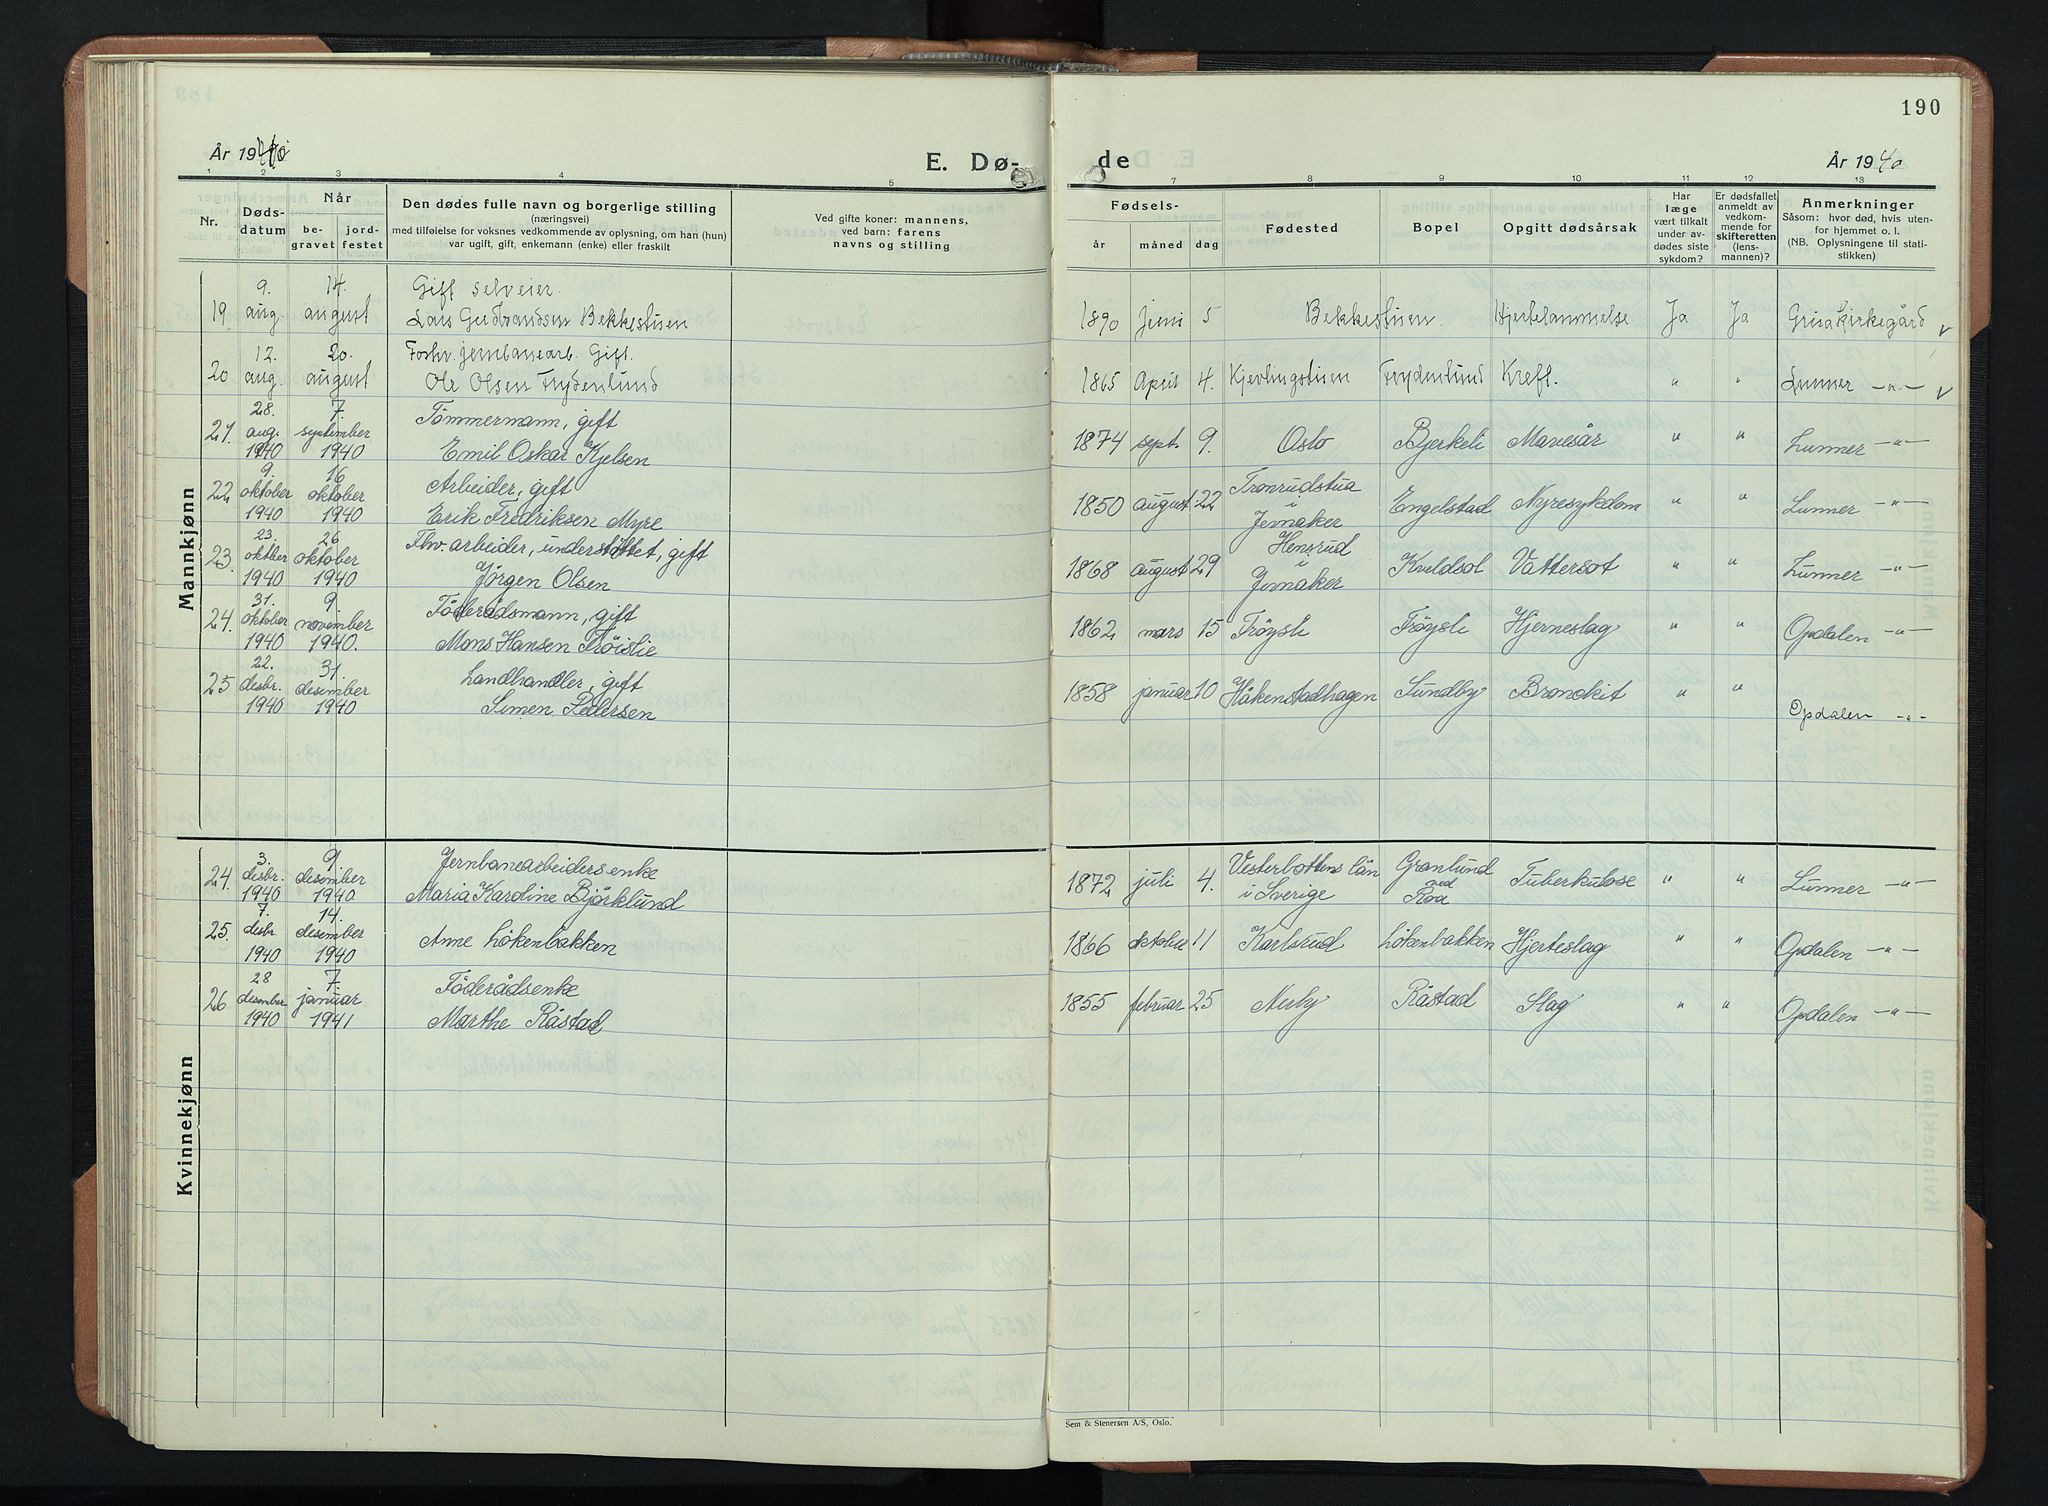 190
År 1940
E. Dø-
de
År 1940
1 2 3 4 5 7 8 9 10 11 12 13
Nr.
Døds-
datum
Når
be-
gravet
jord-
festet
Den dødes fulle navn og borgerlige stilling
(næringsvei)
med tilføielse for voksnes vedkommende av oplysning, om han (hun)
var ugift, gift, enkemann (enke) eller fraskilt
Ved gifte koner: mannens,
ved barn: farens
navns og stilling
Fødsels-
år måned dag
Fødested
Bopel
Opgitt dødsårsak
Har
læge
vært tilkalt
under av-
dødes siste
sykdom?
Er dødsfallet
anmeldt av
vedkom-
mende for
skifteretten
(lens-
mannen)?
Anmerkninger
Såsom: hvor død, hvis uten-
for hjemmet o. l.
(NB. Oplysningene til stati-
stikken)
Mannkjønn
9. 14. Gift selveier.
19 aug. august Lars Gudbrandsen Bekkestuen 1890 juni 5 Bekkestuen. Hjertelammelse Ja Ja Grisakirkegård
12. 20. Forhv. jernbanearb. Gift.
20 aug. august Ole Olsen Frydenlund 1865 April 4. Kjevlingstuen Frydenlund Kreft. " " Lunner -"-
28. 7. Tömmermann, gift
21. aug. september 1874 sept. 9. Oslo Bjerkeli Mavesår " " Lunner -"-
1940 1940 Emil Oskar Kjelsen
9. 16 Arbeider, gift Tronrudstua
22 oktober oktober 1850 august 22 i Engelstad Nyresykdom " " Lunner -"-
1940 1940 Erik Fredriksen Myre Jevnaker
23. 26 Fhv. arbeider, understöttet, gift Hensrud
23. oktber oktober 1868 august 29 i Kveldsol Vattersot " " Lunner -"-
1940 1940 Jörgen Olsen Jevnaker
31. 9. Föderådsmann, gift
24. oktober november 1862 mars 15 Tröysli Tröysli Hjerneslag " " Opdalen -"-
1940 1940. Mons Hansen Tröislie
22. 31. Landhandler, gift
25 desbr. desember 1858 januar 10 Håkenstadhagen Sundby Bronokit " "
1940 1940 Simen Pedersen Opdalen -"-
Kvinnekjønn
3. 9. Jernbanearbeidersenke Vesterbottens län Granlund
24. desbr. desember 1872 juli 4. i Sverige ved Roa Tuberkulose " " Lunner -"-
1940 1940. Maria Karoline Björklund
7. 14.
25. desbr. desember Anne Lökenbakken 1866 oktober 11 Karlsrud Lökenbakken Hjerteslag " " Opdalen -"-
1940 1940
28 7. Föderådsenke
26 desember januar 1855 februar 25 Nerby Råstad Slag " " Opdalen -"-
1940 1941 Marthe Råstad
Sem & Stenersen A/S, Oslo.